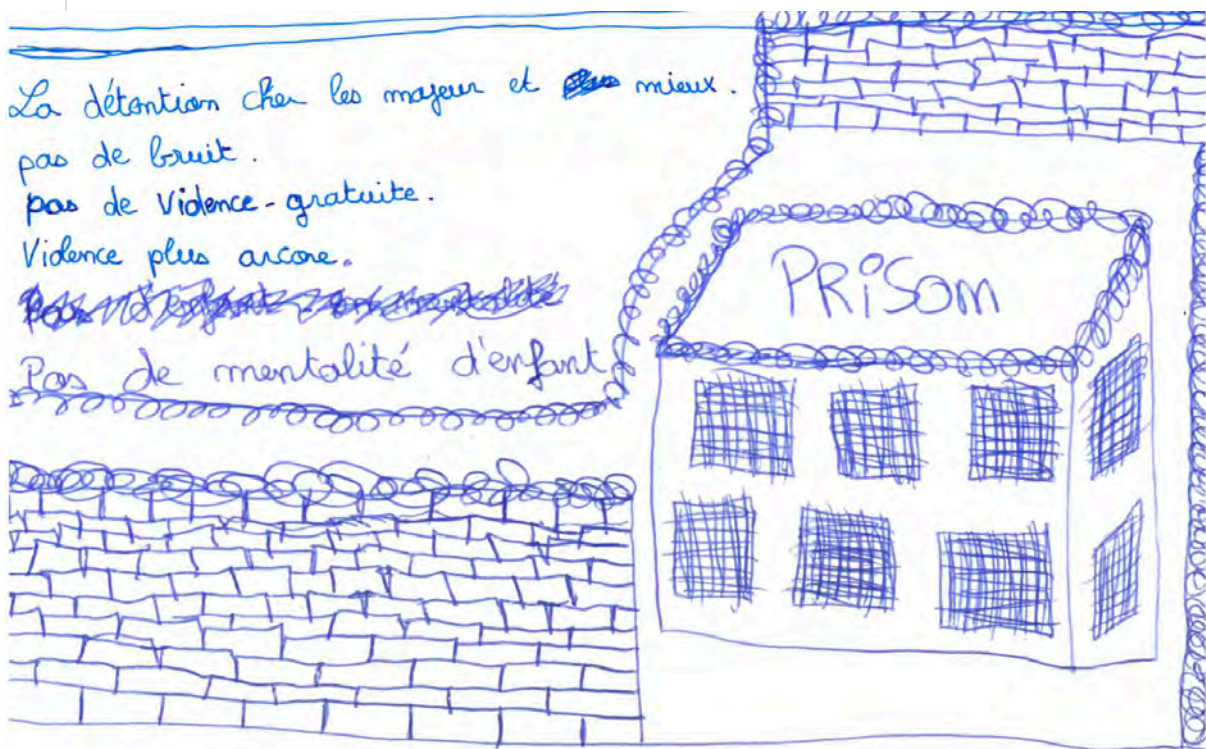 La détention cher les majeur et mieux.
pas de bruit.
pas de violence-gratuite.
Violence plus arcore.
Pas de mentalité d'enfant
PRiSom